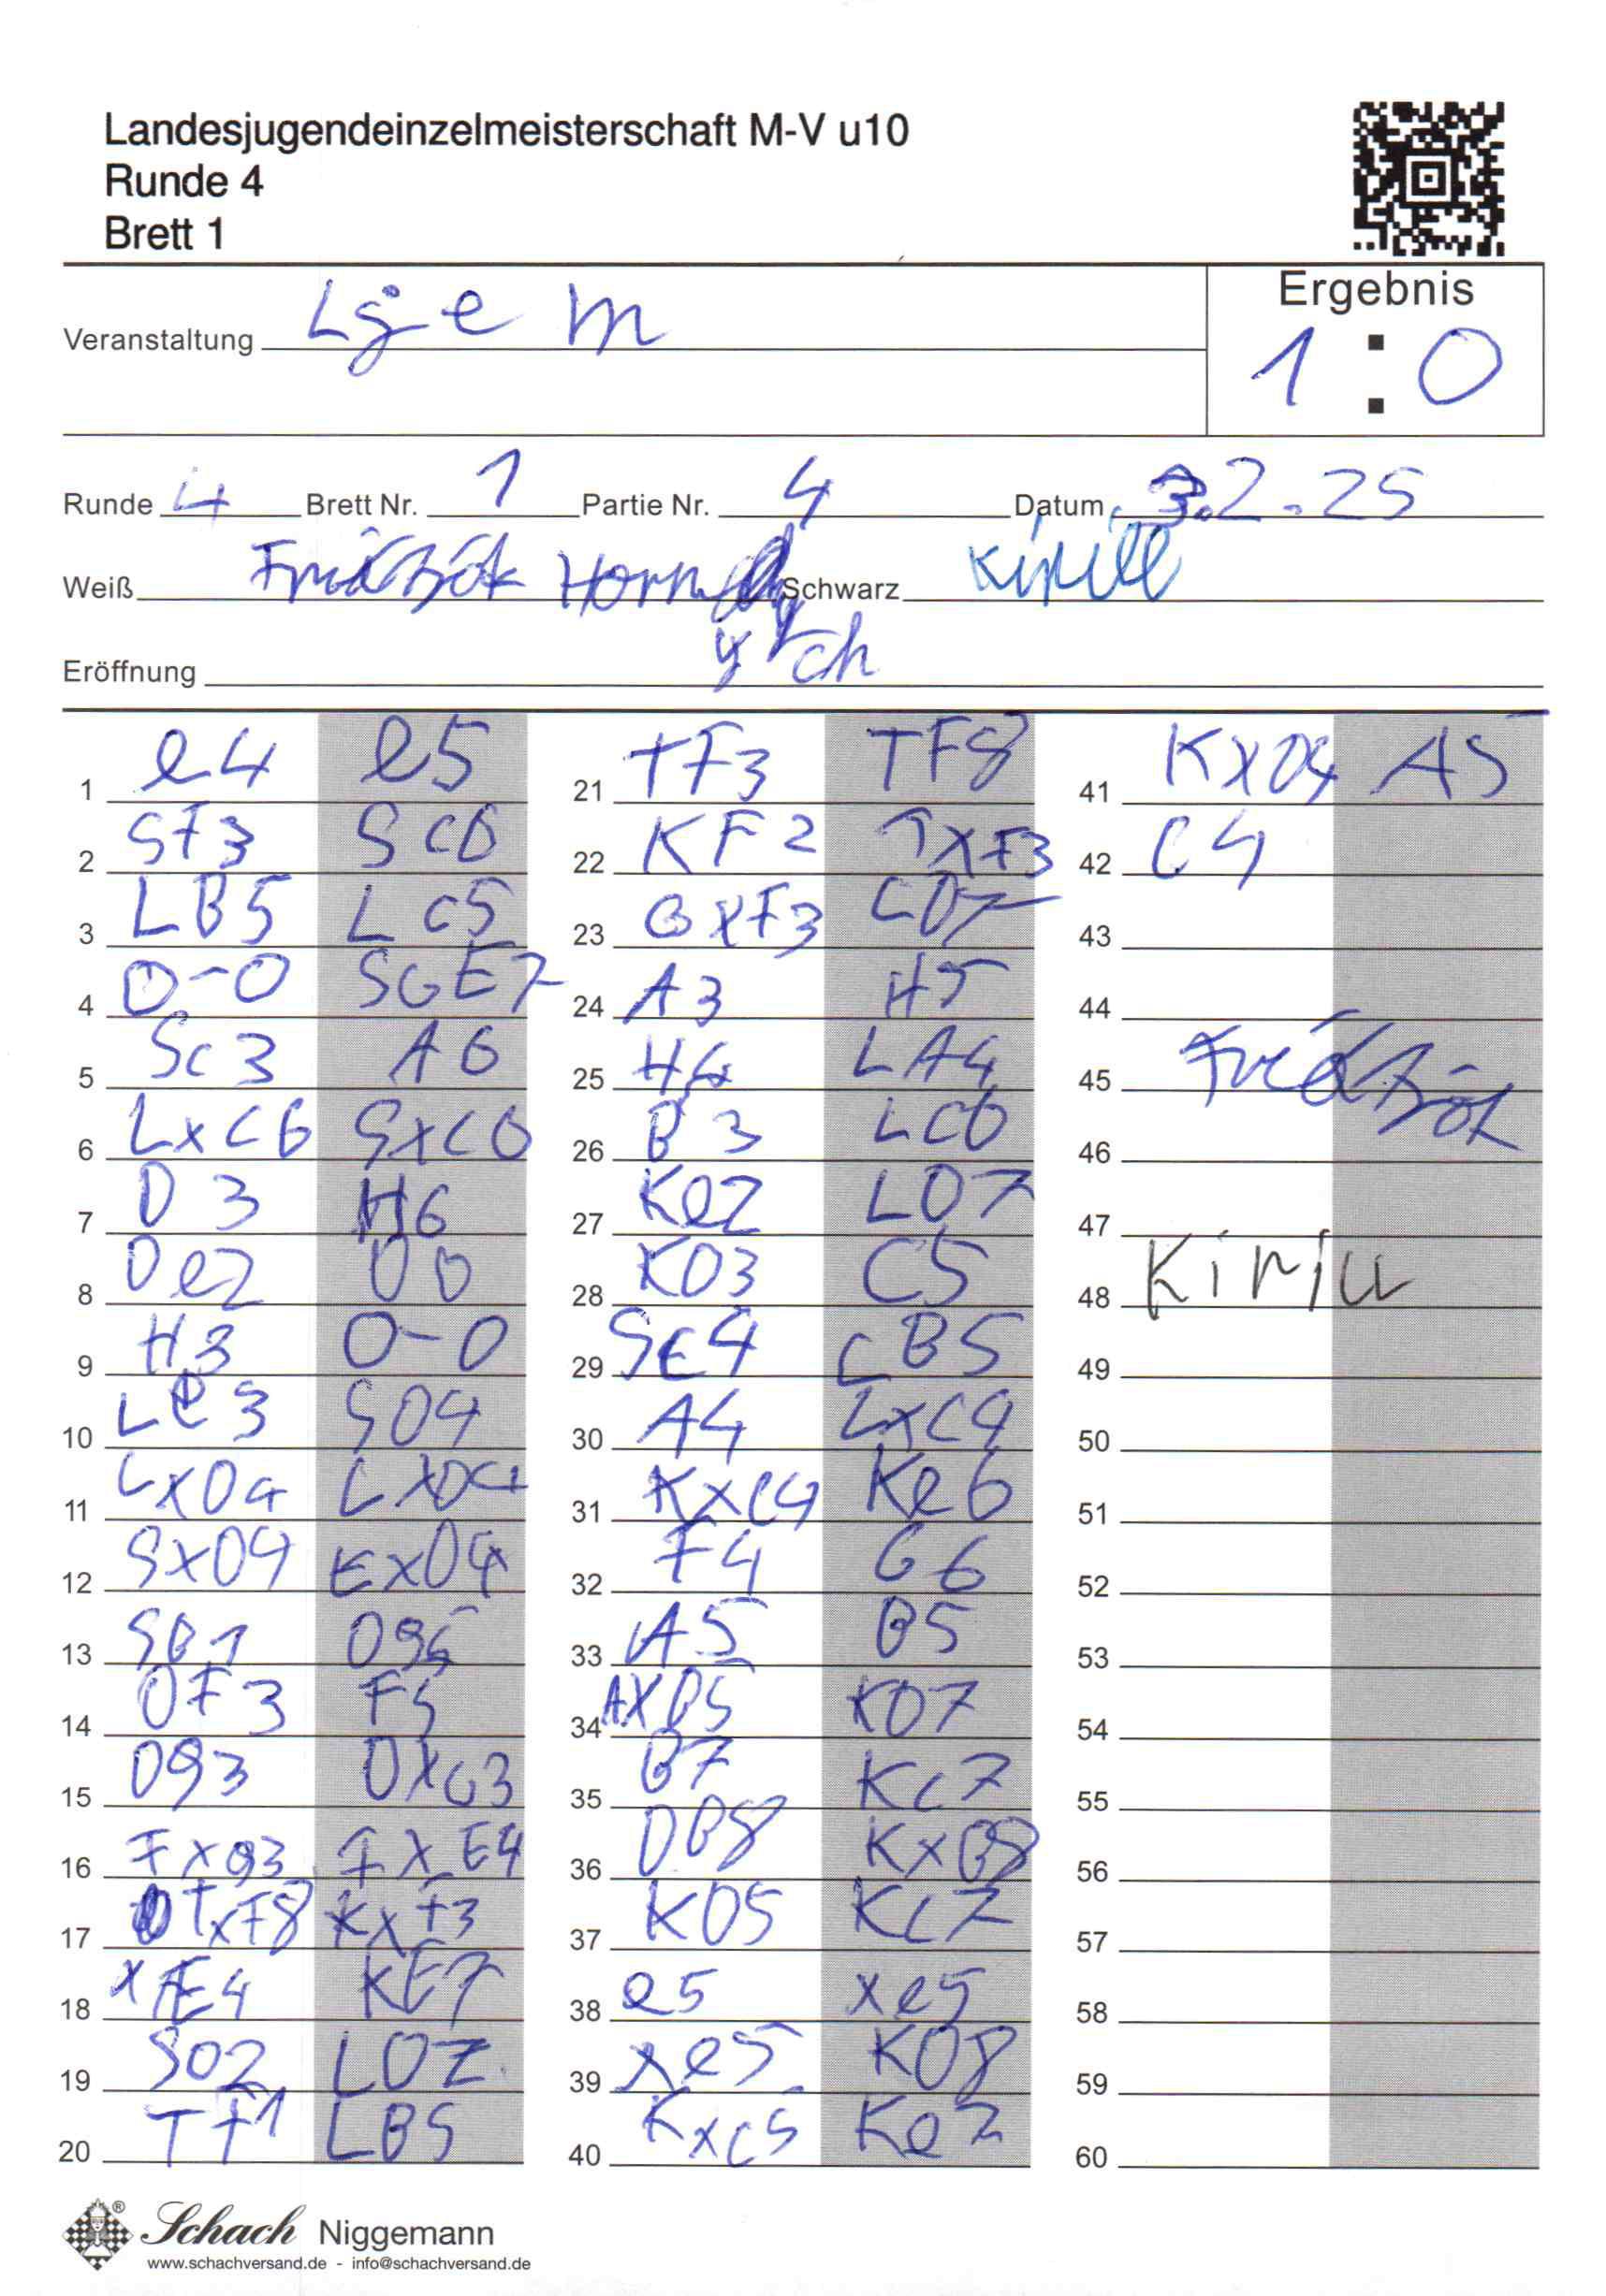 Landesjugendeinzelmeisterschaft M-V u10
Runde 4
Brett 1
Ergebnis
Veranstaltung Ljem
1 : 0
Runde 4 Brett Nr. 1 Partie Nr. 4 Datum 3.2.25
Weiß Horn Schwarz Kirill
ych
Eröffnung
1 e4 e5
2 SF3 SC6
3 LB5 LC5
4 0-0 SGE7
5 SC3 A6
6 LxC6 SxC6
7 D3 H6
8 De2 D6
9 H3 0-0
10 Le3 SD4
11 LxD4 LxD4
12 SxD4 ExD4
13 SB1 Dg5
14 DF3 F5
15 Dg3 DxG3
16 Fxg3 FxE4
17 TxF8 KxF8
18 xE4 KE7
19 SD2 LD7
20 TF1 LB5
21 TF3 TF8
22 KF2 TxF3
23 GxF3 LD7
24 A3 H5
25 H4 LA4
26 B3 LC6
27 Ke2 LD7
28 KD3 C5
29 SE4 LB5
30 A4 LxC4
31 KxC4 Ke6
32 F4 G6
33 A5 B5
34 AXB5 KD7
35 B7 KC7
36 DB8 KxB8
37 KD5 KC7
38 e5 xe5
39 xe5 KD8
40 KxC5 Ke7
41 KxD4 A5
42 C4
43
44
45
46
47
48 Kirill
49
50
51
52
53
54
55
56
57
58
59
60
Schach Niggemann
www.schachversand.de - info@schachversand.de